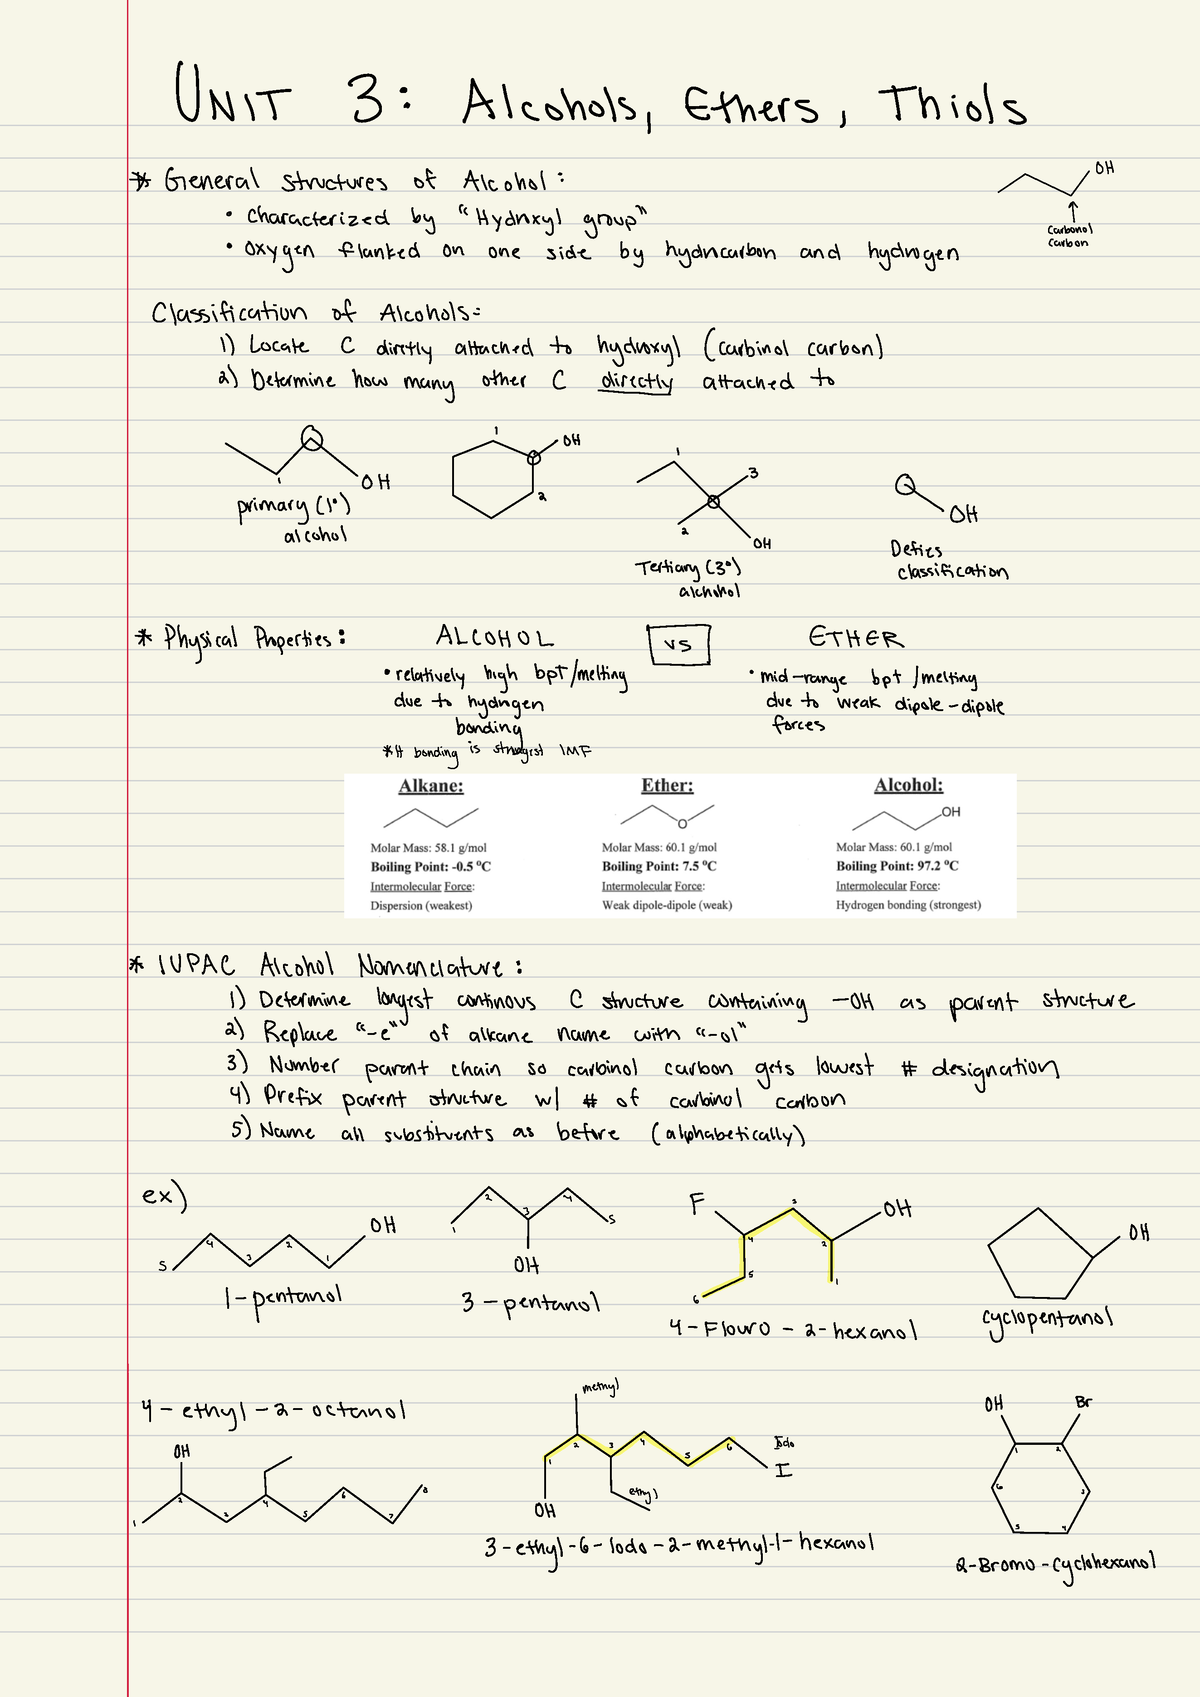 UNIT 3: Alcohols, Ethers, Thiols
* General structures of Alcohol:
• Characterized by "Hydroxyl group"
• Oxygen flanked on one side by hydrocarbon and hydrogen
OH
Carbonol
Carbon
Classification of Alcohols:
1) Locate C directly attached to hydroxyl (carbinol carbon)
2) Determine how many other C directly attached to
1
OH
primary (1°)
alcohol
1
OH
2
1
3
2
OH
Tertiary (3°)
alchohol
OH
Defies
classification
* Physical Properties:
ALCOHOL
vs
ETHER
• relatively high bpt/melting
due to hydrogen
bonding
*H bonding is strongest IMF
• mid-range bpt/melting
due to weak dipole-dipole
forces
Alkane:
Molar Mass: 58.1 g/mol
Boiling Point: -0.5 °C
Intermolecular Force:
Dispersion (weakest)
Ether:
O
Molar Mass: 60.1 g/mol
Boiling Point: 7.5 °C
Intermolecular Force:
Weak dipole-dipole (weak)
Alcohol:
OH
Molar Mass: 60.1 g/mol
Boiling Point: 97.2 °C
Intermolecular Force:
Hydrogen bonding (strongest)
* IUPAC Alcohol Nomenclature:
1) Determine longest continous C structure containing -OH as parent structure
2) Replace "-e" of alkane name with "-ol"
3) Number parent chain so carbinol carbon gets lowest # designation
4) Prefix parent structure w/ # of carbinol carbon
5) Name all substituents as before (alphabetically)
ex)
5 4 3 2 1 OH
1-pentanol
1 2 3 4 5
OH
3-pentanol
F
OH
6 5 4 3 2 1
4-Flouro-2-hexanol
OH
cyclopentanol
4-ethyl-2-octanol
OH
1 2 3 4 5 6 7 8
methyl
1 2 3 4 5 6
Iodo
I
ethyl
OH
3-ethyl-6-Iodo-2-methyl-1-hexanol
OH
Br
1 2 3 4 5 6
2-Bromo-cyclohexanol